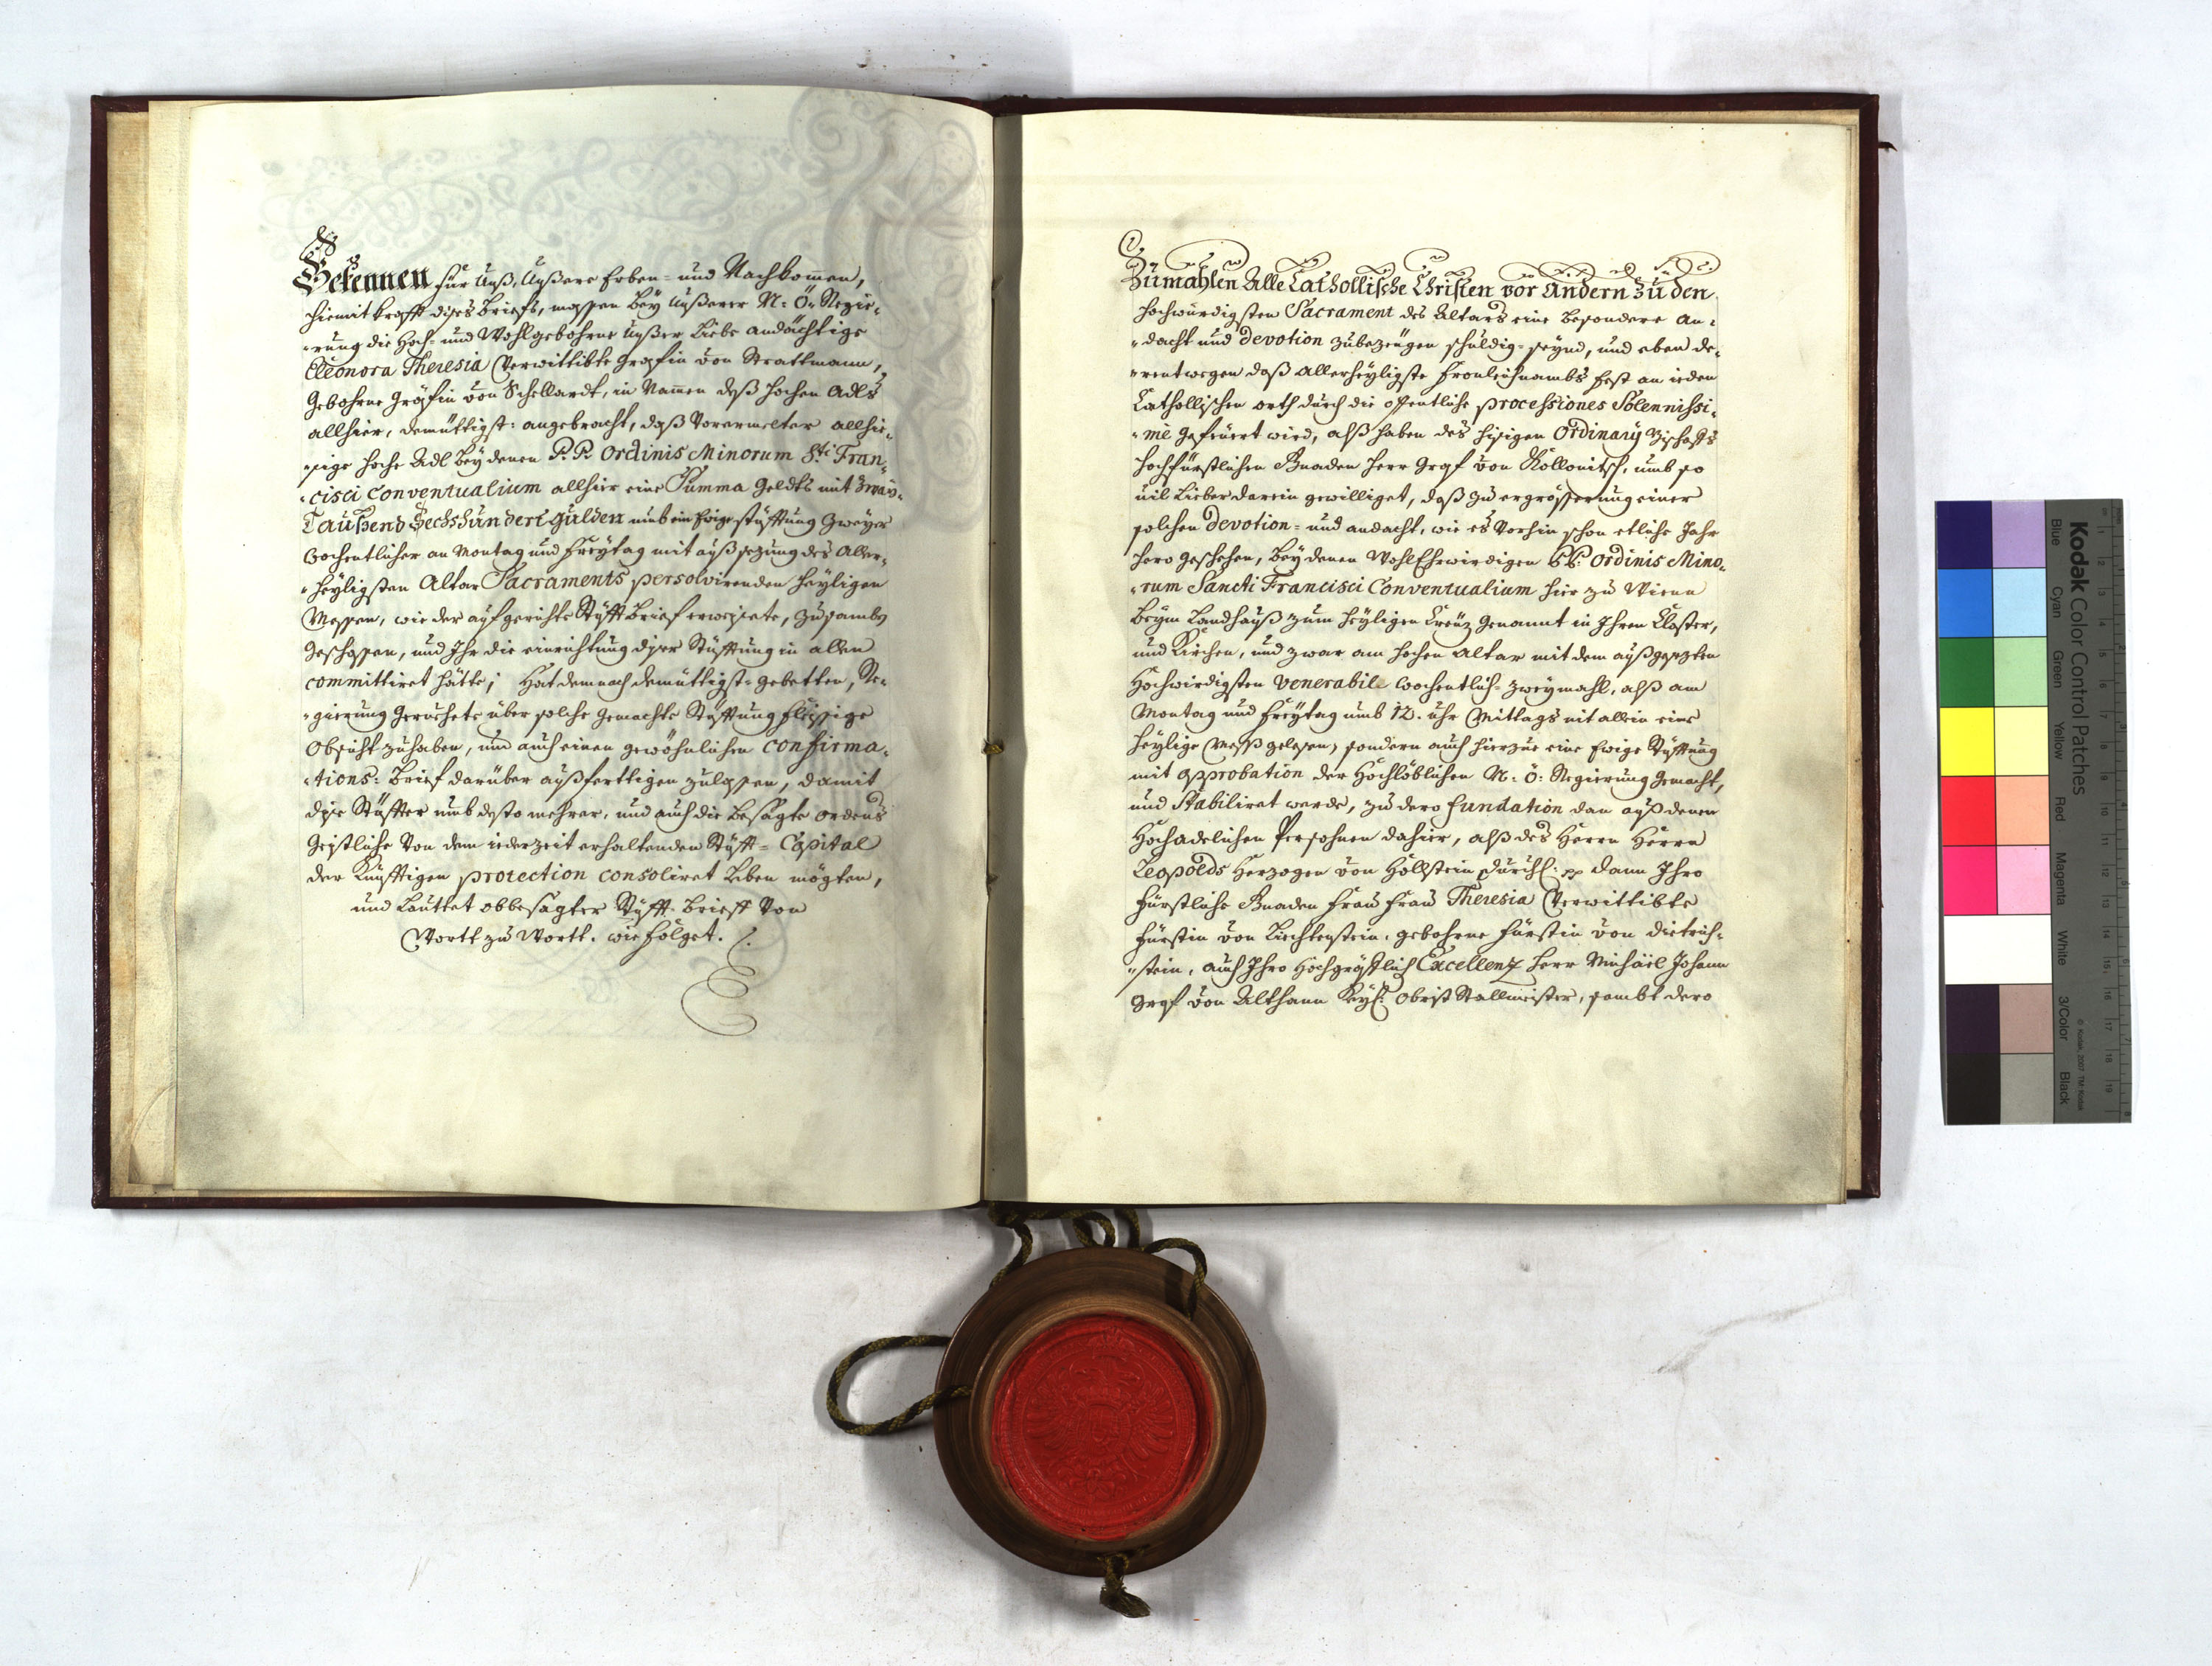 Bekennen für Unß, Unßere Erben- und Nachkom̅en,
hiemit krafft dises Briefs, wassen bey Unßerer N: Ö: Regie-
-rung die Hoch- und Wohlgebohrne Unßer Liebe andächtige
Eleonora Theresia Verwittibte Gräfin von Strattmann,
Gebohrne Gräfin von Schellardt, in Nam̅en deß hohen Adls
allhier, demüttigst: angebracht, daß Vorermelter allhie-
-sige hohe Adl bey denen P. P. Ordinis Minorum S:ti Fran-
-cisci Conventualium allhier eine Summa Geldts mit Zway-
Taußend Sechshundert Gulden umb ein Ewige Stüfftung Zweyer
Wochentlicher an Montag und Freytag mit außsezung des Aller-
-heyligsten Altar Sacraments persolvirenden heyligen
Messen, wie der aufgerichte Stüfft Brief erweisete, Zusamben
geschossen, und Ihr die einrichtung diser Stüfftung in allen
committiret hätte; Hat demnach demüttigst- gebetten, Re-
-gierung geruhete über solche gemachte Stüfftung fleissige
Obsicht zuhaben, und auch einen gewöhnlichen Confirma-
-tions- Brief darüber außferttigen zulassen, damit
dise Stüffter umb desto mehrer, und auch die besagte Ordens
Geistliche Von dem iederzeit erhaltenden Stüfft- Capital
der künfftigen protection consoliret Leben mögten,
und Lauttet obbesagter Stüfft- Brieff Von
Wortt zu Wortt. wie folget.
Zumahlen Alle Cathollische Christen vor Andern Zu den
Hochwürdigsten Sacrament des Altars eine besondere An-
-dacht und Devotion zubezeugen schuldig- seynd, und eben de-
-rentwegen daß Allerheyligste Fronleichnambs Fest an ieden
Cathollischen orth durch die offentliche processiones Solennissi-
-mè gefeuert wird, alß haben des hisigen Ordinarij Bischoffs
Hochfürstlichen Gnaden Herr Graf von Kollonitsch, umb so
vil Lieber darein gewilliget, daß zu ergrösserung einer
solchen Devotion- und andacht, wie es Vorhin schon etliche Jahr
hero geschehen, bey denen WohlEhrwirdigen P.P: Ordinis Mino-
-rum Sancti Francisci Conventualium hier zu Wienn
beym Landhauß zum heyligen Creuz genannt in Ihren Closter,
und Kirchen, und zwar am hohen Altar mit dem außgesezten
Hochwirdigsten Venerabile wochentlich- zweymahl, alß am
Montag und Freytag umb 12. Uhr Mittags nit allein eine
heylige Mess gelesen, sondern auch hierzue eine Ewige Stüfftung
mit approbation der Hochlöblichen N: Ö: Regierung gemacht,
und Stabiliret werde, zu dero Fundation dan auß denen
Hochadelichen Persohnen dahier, alß des Herrn Herrn
Leopolds Herzogen von Hollstein Durchl: pp dann Ihro
Fürstliche Gnaden Frau Frau Theresia Verwittibte
Fürstin von Liechtenstein, gebohrne Fürstin von Dietrich-
-stein, auch Ihro Hochgräfflich Excellenz Herr Michäel Johann
Graf von Althann Kayß: Obrist Stallmeister, sambt dero
Kodak Color Control Patches
© Kodak, 2007 TM: Kodak
Blue Cyan Green Yellow Red Magenta White 3/Color Black
1 2 3 4 5 6 7 8 9 10 11 12 13 14 15 16 17 18 19